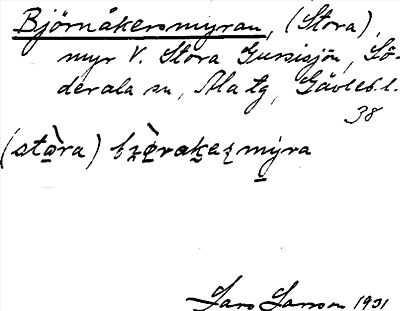 Björnåkersmyran, (Stora),
myr V. Stora Gussisjön, Sö-
derala sn, Ala tg, Gävleb. l.
38
(stòra)
myra
Lars Larsson 1931